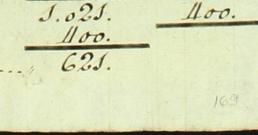 1.021. 400.
400.
621.
169